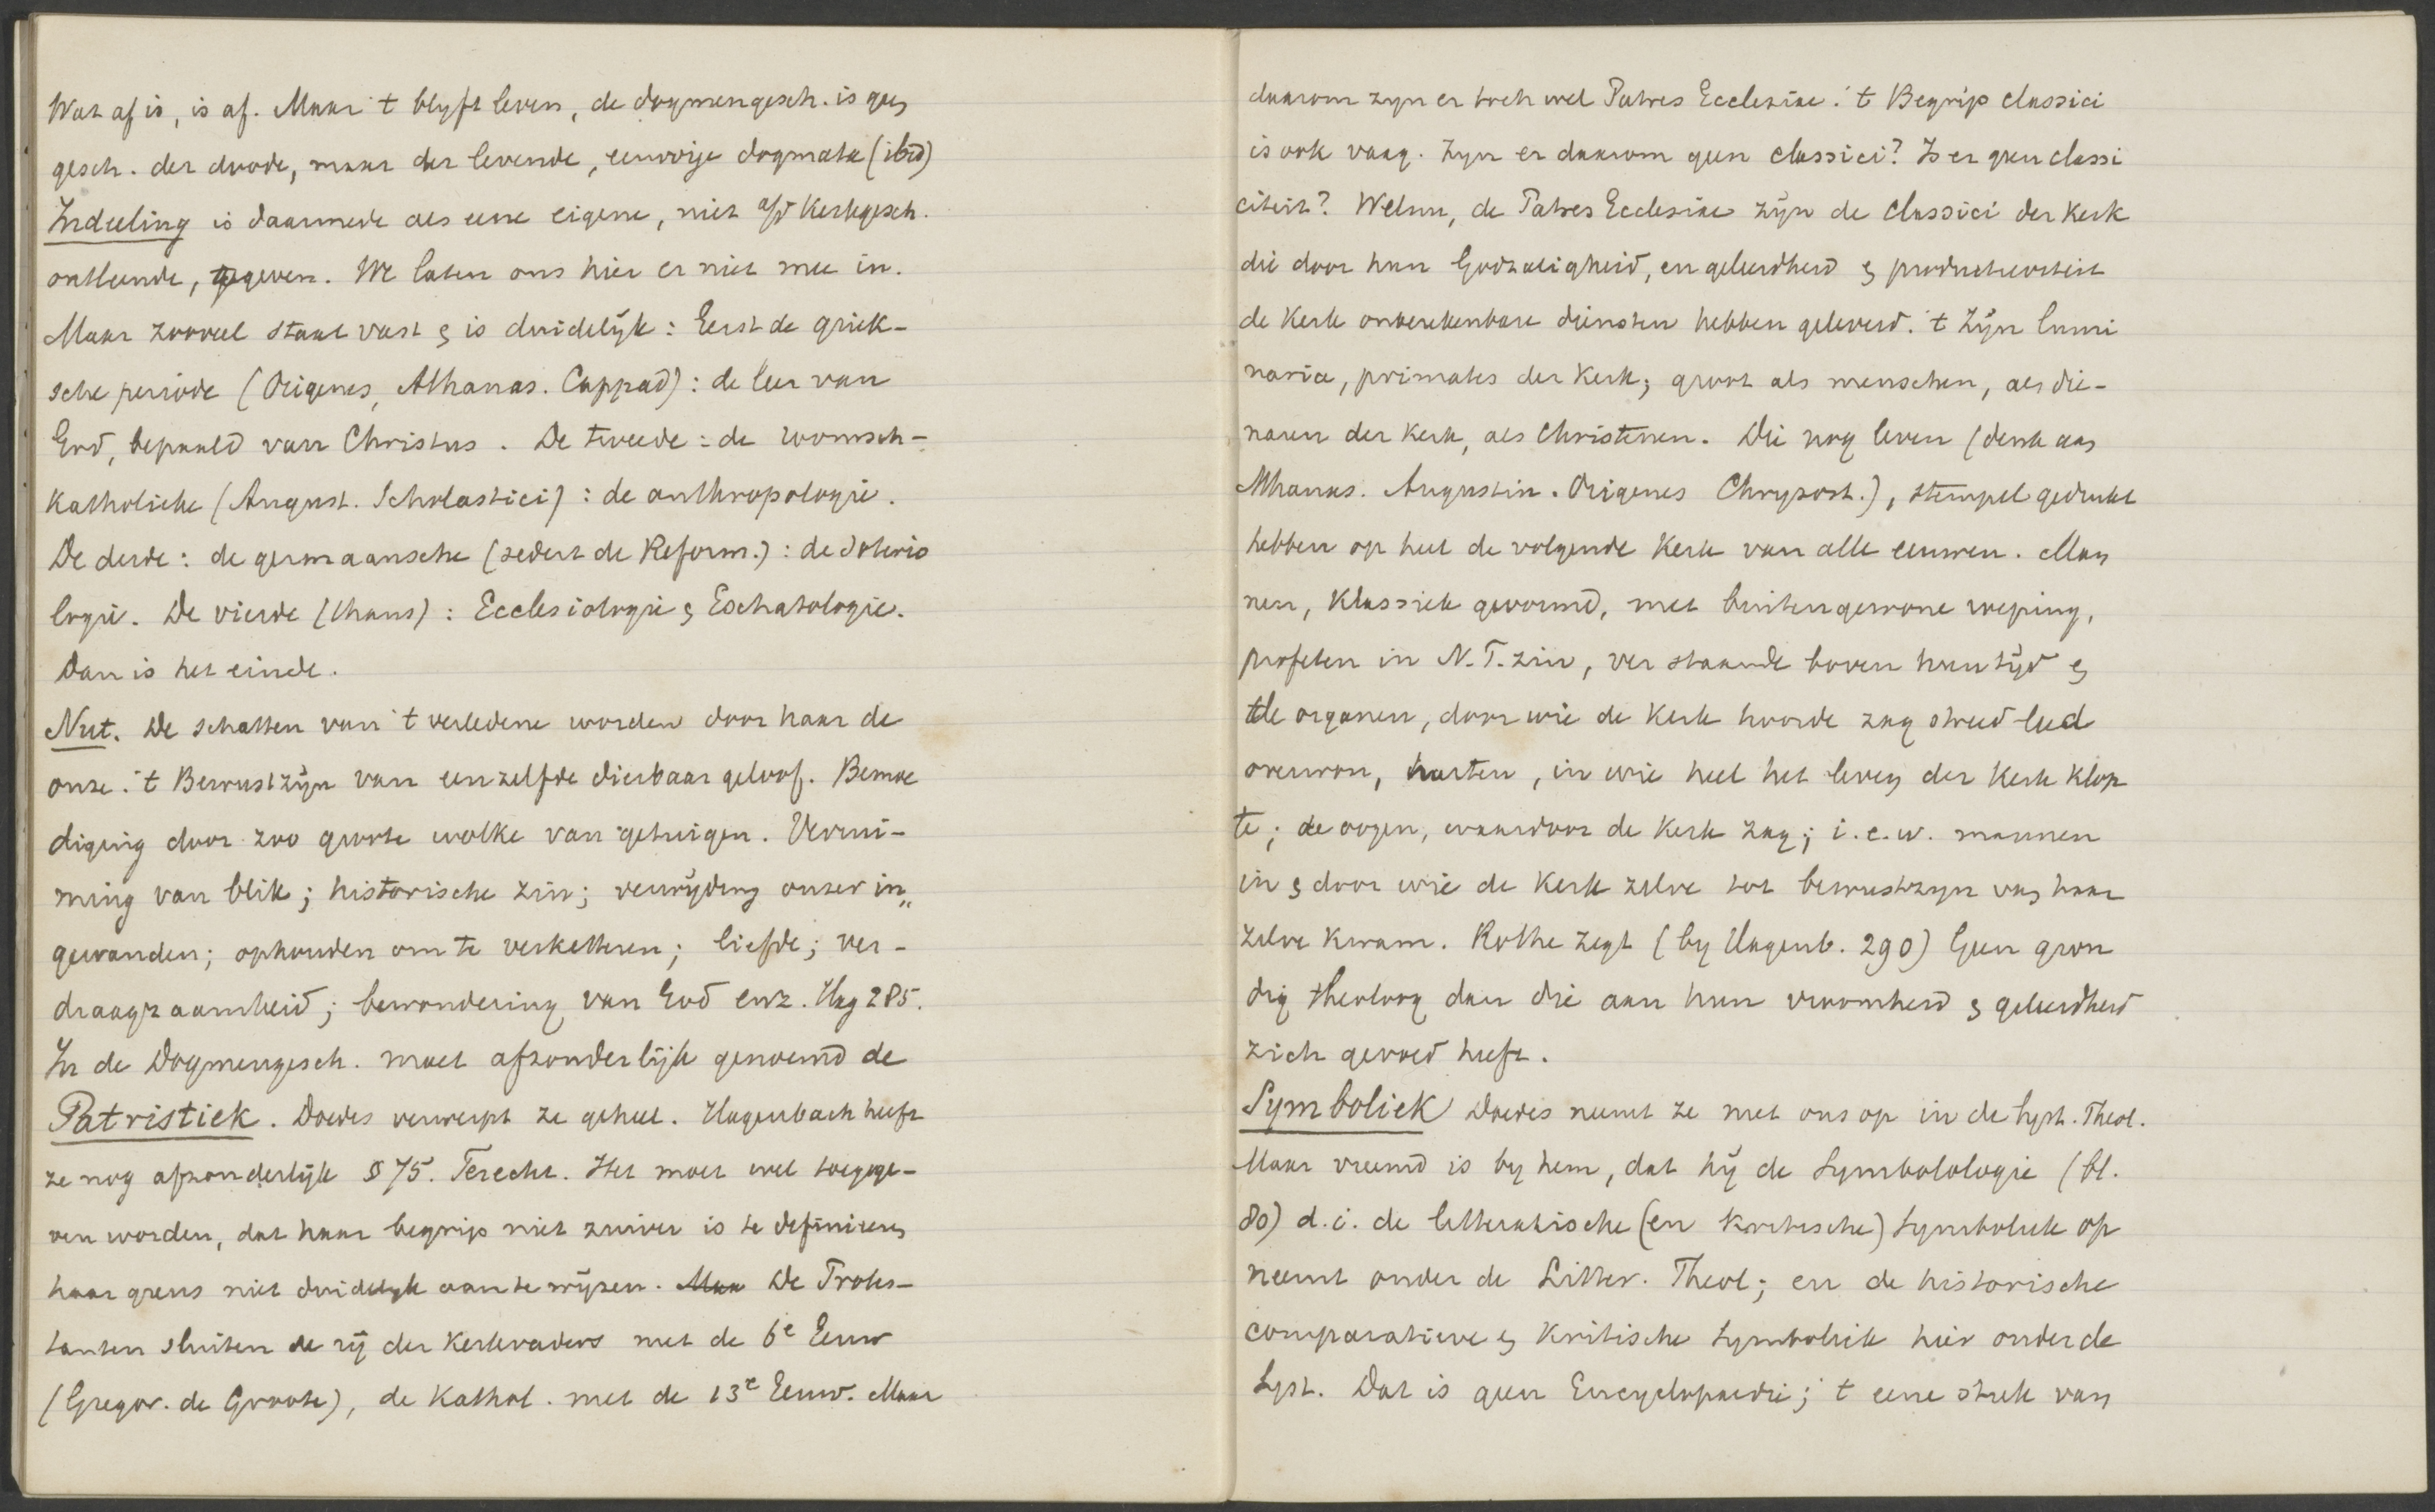 Wat af is, is af. Maar 't blyft leven, de dogmengesch. is geen
gesch. der doode, maar der levende, eeuwige dogmata (ibid)
Indeeling is daarmede als eene eigene, niet a/d Kerkgesch.
ontleende, gegeven. We laten ons hier er niet mee in.
Maar zooveel staat vast & is duidelijk: Eerst de Griek-
sche periode (Origenes, Athanas. Cappad): de leer van
God, bepaald van Christus. De tweede: de roomsch-
Katholieke (August. Scholastici): de anthropologie.
De derde: de germaansche (sedert de Reform.): de soterio
logie. De vierde (thans): Ecclesiologie & Eschatologie.
Dan is het einde.
Nut. De schatten van 't verledene worden door haar de
onze. 't Bewustzijn van eenzelfde dierbaar geloof. Bemoe
diging door zoo groote wolke van getuigen. Verrui-
ming van blik; historische zin; verwijding onzer in„
gewanden; ophouden om te verketteren; liefde; ver-
draagzaamheid; bewondering van God enz. Hag 285.
In de Dogmengesch. moet afzonderlijk genoemd de
Patristiek. Doedes verwerpt ze geheel. Hagenbach heeft
ze nog afzonderlijk § 75. Terecht. Het moet wel toegege-
ven worden, dat haar begrip niet zuiver is te definieeren
haar grens niet duidelyk aan te wijzen. Maa De Protes-
tanten sluiten de rij der Kerkvaders met de 6e Eeuw
(Gregor. de Groote), de Kathol. met de 13e Eeuw. Maar
daarom zyn er toch wel Patres Ecclesiae. 't Begrip classici
is ook vaag. Zyn er daarom geen classici? Is er geen classi
citeit? Welnu, de Patres Ecclesiae zijn de classici der Kerk
die door hun Godzaligheid, en geleerdheid & productiviteit
de Kerk onberekenbare diensten hebben geleverd. 't Zijn lumi
naria, primates der Kerk; groot als menschen, als die-
naren der Kerk, als Christenen. Die nog leven (denk aan
Athanas. Augustin. Origenes Chrysost.), stempel gedrukt
hebben op heel de volgende Kerk van alle eeuwen. Man
nen, Klassiek gevormd, met buitengewone roeping,
profeten in N.T. zin, ver staande boven hun tijd &
de organen, door wie de Kerk hoorde zag streed leed
overwon, harten, in wie heel het leven der Kerk klop
te; de oogen, waardoor de Kerk zag; i.e.w. mannen
in & door wie de Kerk zelve tot bewustzyn van haar
zelve kwam. Rothe zegt (by Hagenb. 290) Geen gron
dig theoloog dan die aan hun vroomheid & geleerdheid
zich gevoed heeft.
Symboliek Doedes neemt ze met ons op in de Syst. Theol.
Maar vreemd is by hem, dat hij de Symbolologie (bl.
80) d.i. de litterarische (en kritische) Symboliek op
neemt onder de Litter. Theol; en de historische
comparatieve & kritische Symboliek hier onder de
Syst. Dat is geen Encyclopaedie; 't eene stuk van